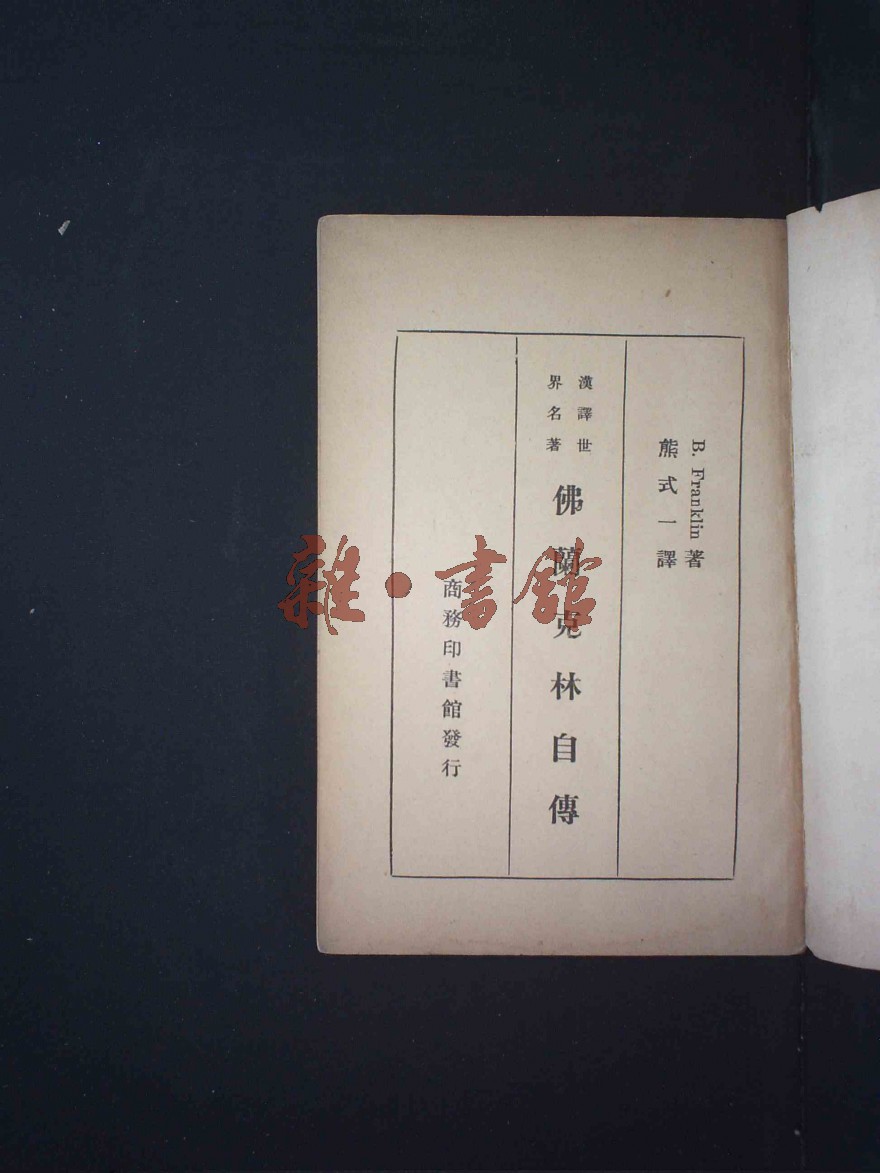 B. Franklin 著
熊式一譯
漢譯世
界名著
佛蘭克林自傳
商務印書館發行
雜·書館